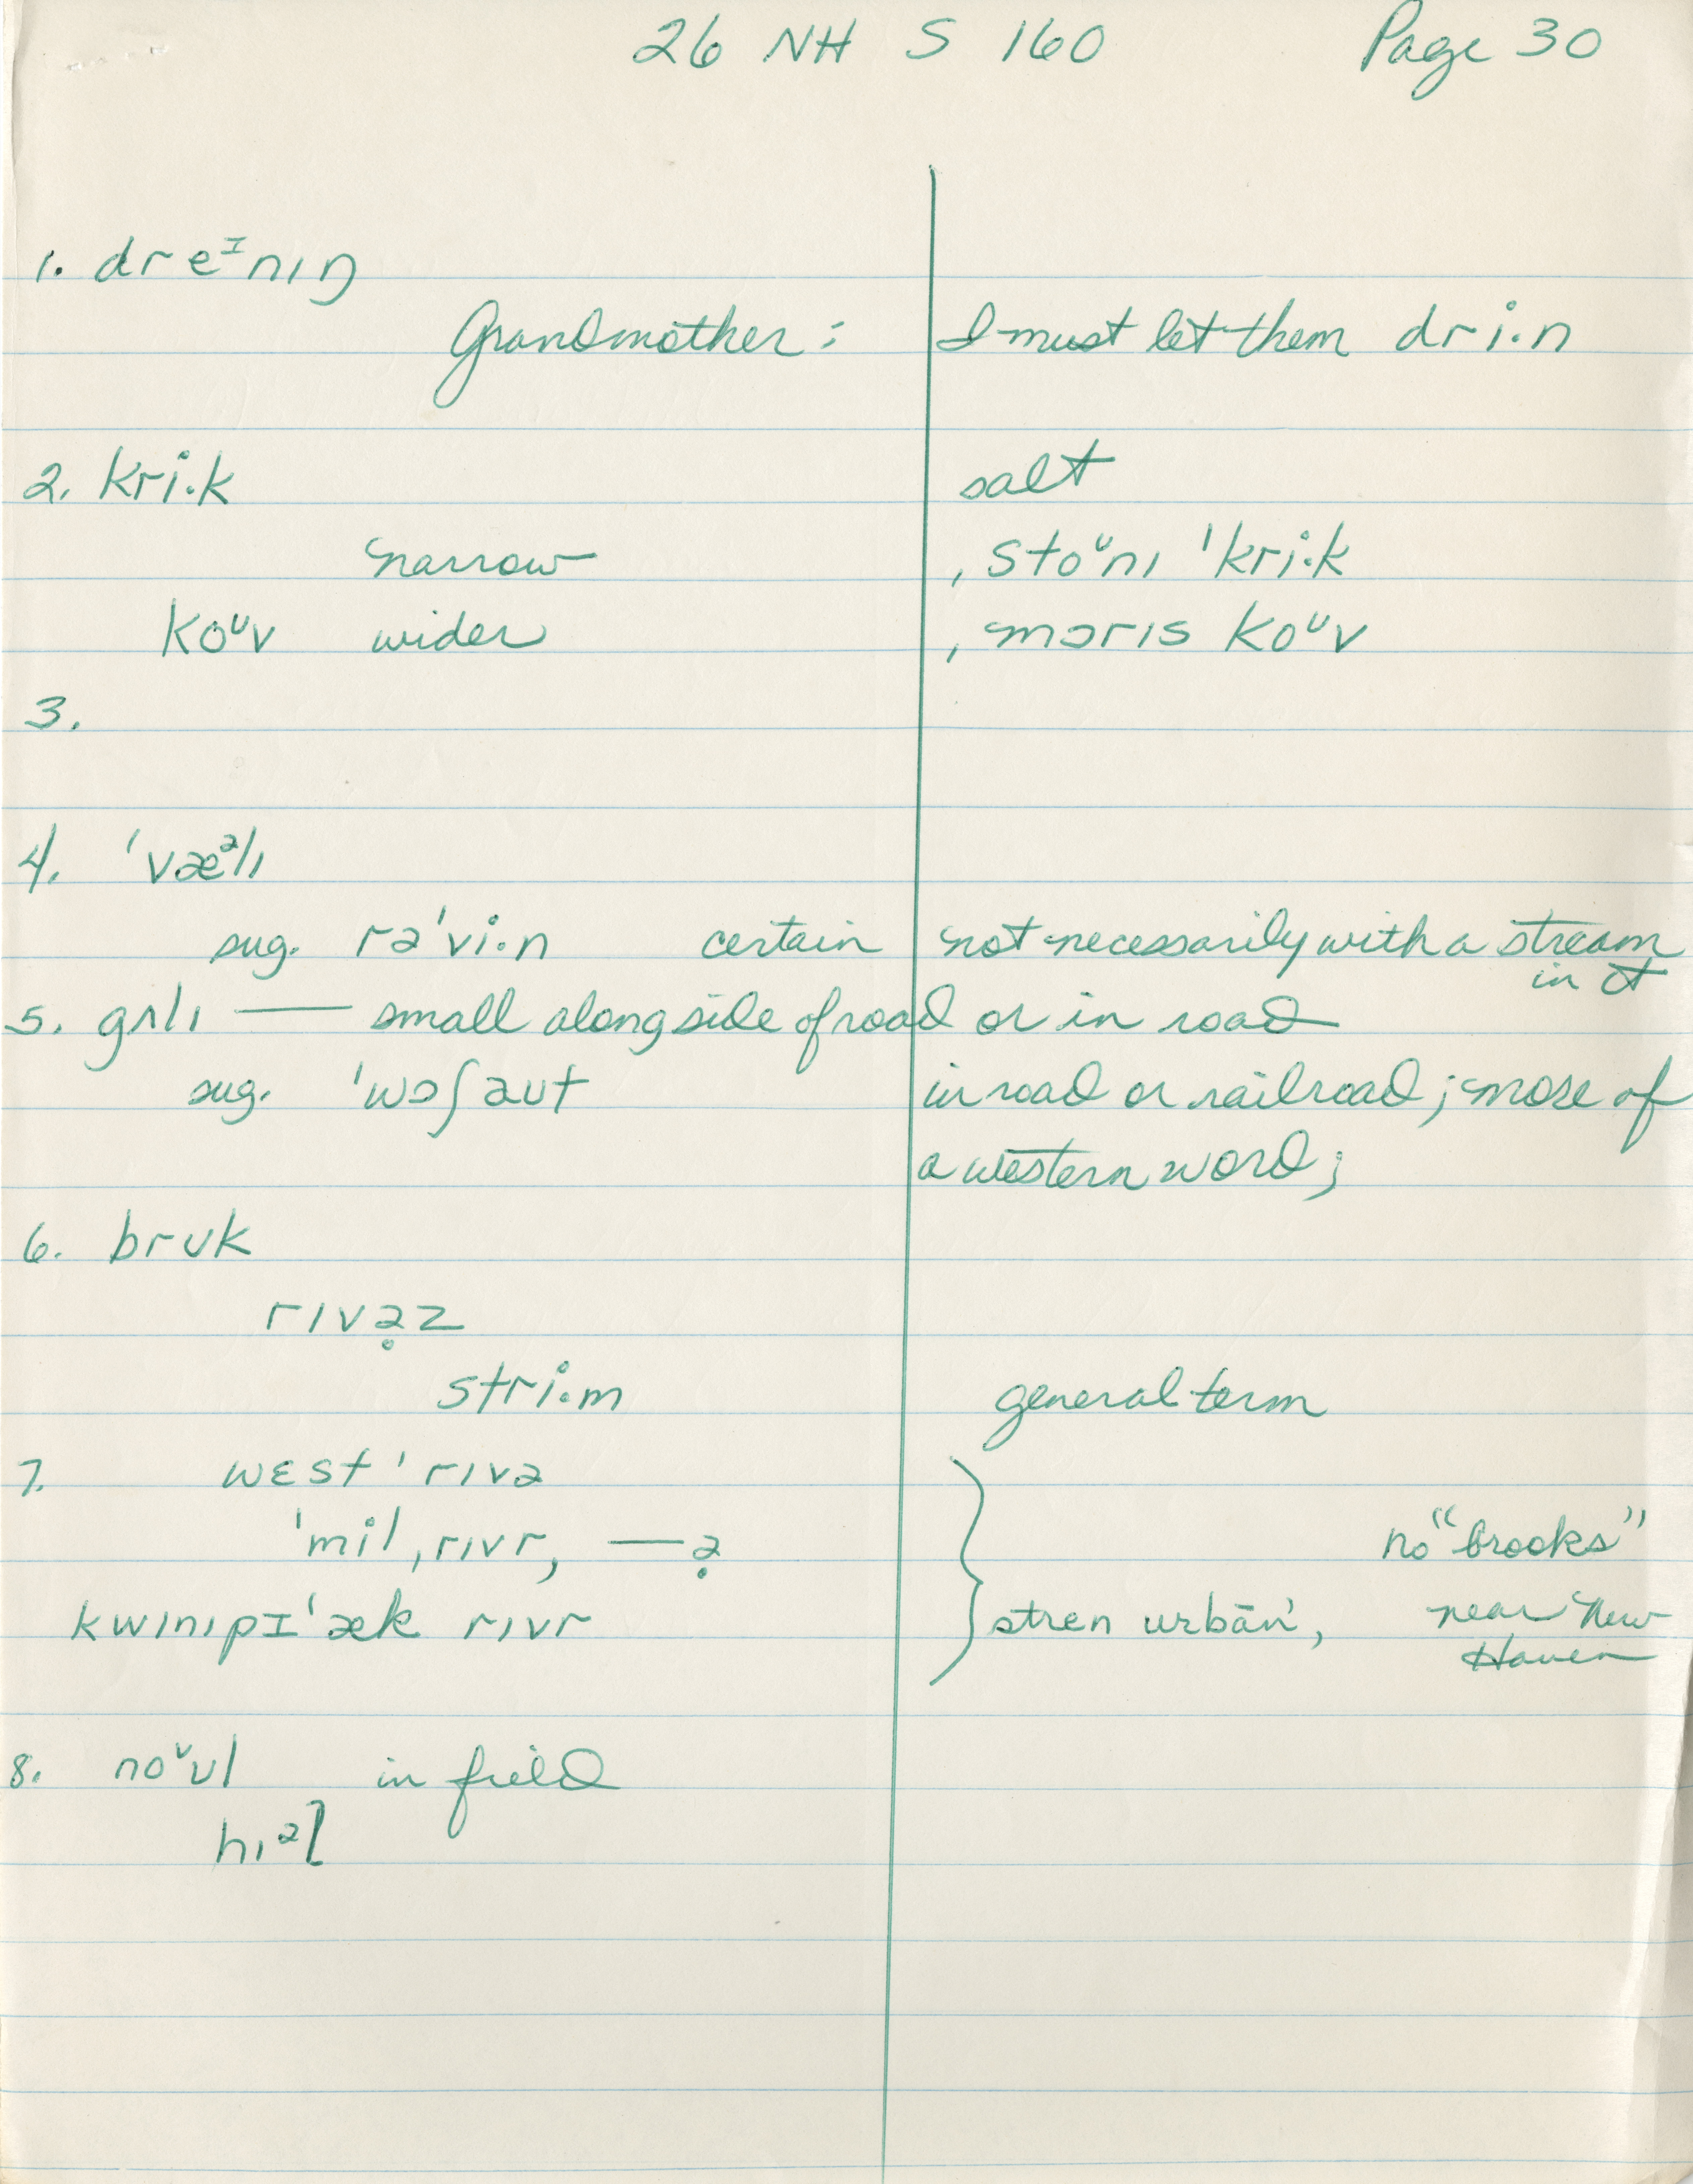 26 NH S 160 Page 30
1. dreᴵnıŋ
Grandmother: I must let them dri·n
2. kri·k salt
narrow ˌstoᶷnı ˈkri·k
koᶷv wider ˌmɔrıs koᶷv
3.
4. ˈvæᵊlı
sug. rəˈvi·n certain not necessarily with a stream
in it
5. gʌlı — small along side of road or in road
sug. ˈwɔʃaut in road or railroad; more of
a western word;
6. brʊk
rıvə̣z
stri·m general term
7. wɛst ˈrıvə
ˈmil ˌrıvr, —ə̣ no "brooks"
kwınıpɪˈæk rıvr urban, near New
Haven
8. noᶷʊl in field
hıᵊɫ